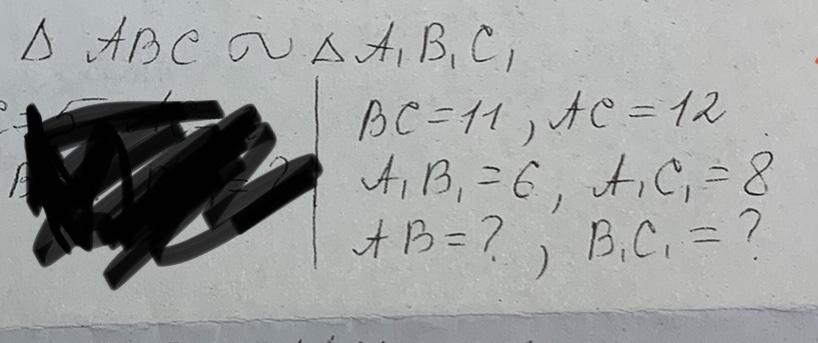 Δ ABC ∾ Δ A₁B₁C₁
BC=11, AC=12
A₁B₁=6, A₁C₁=8
AB=?, B₁C₁=?